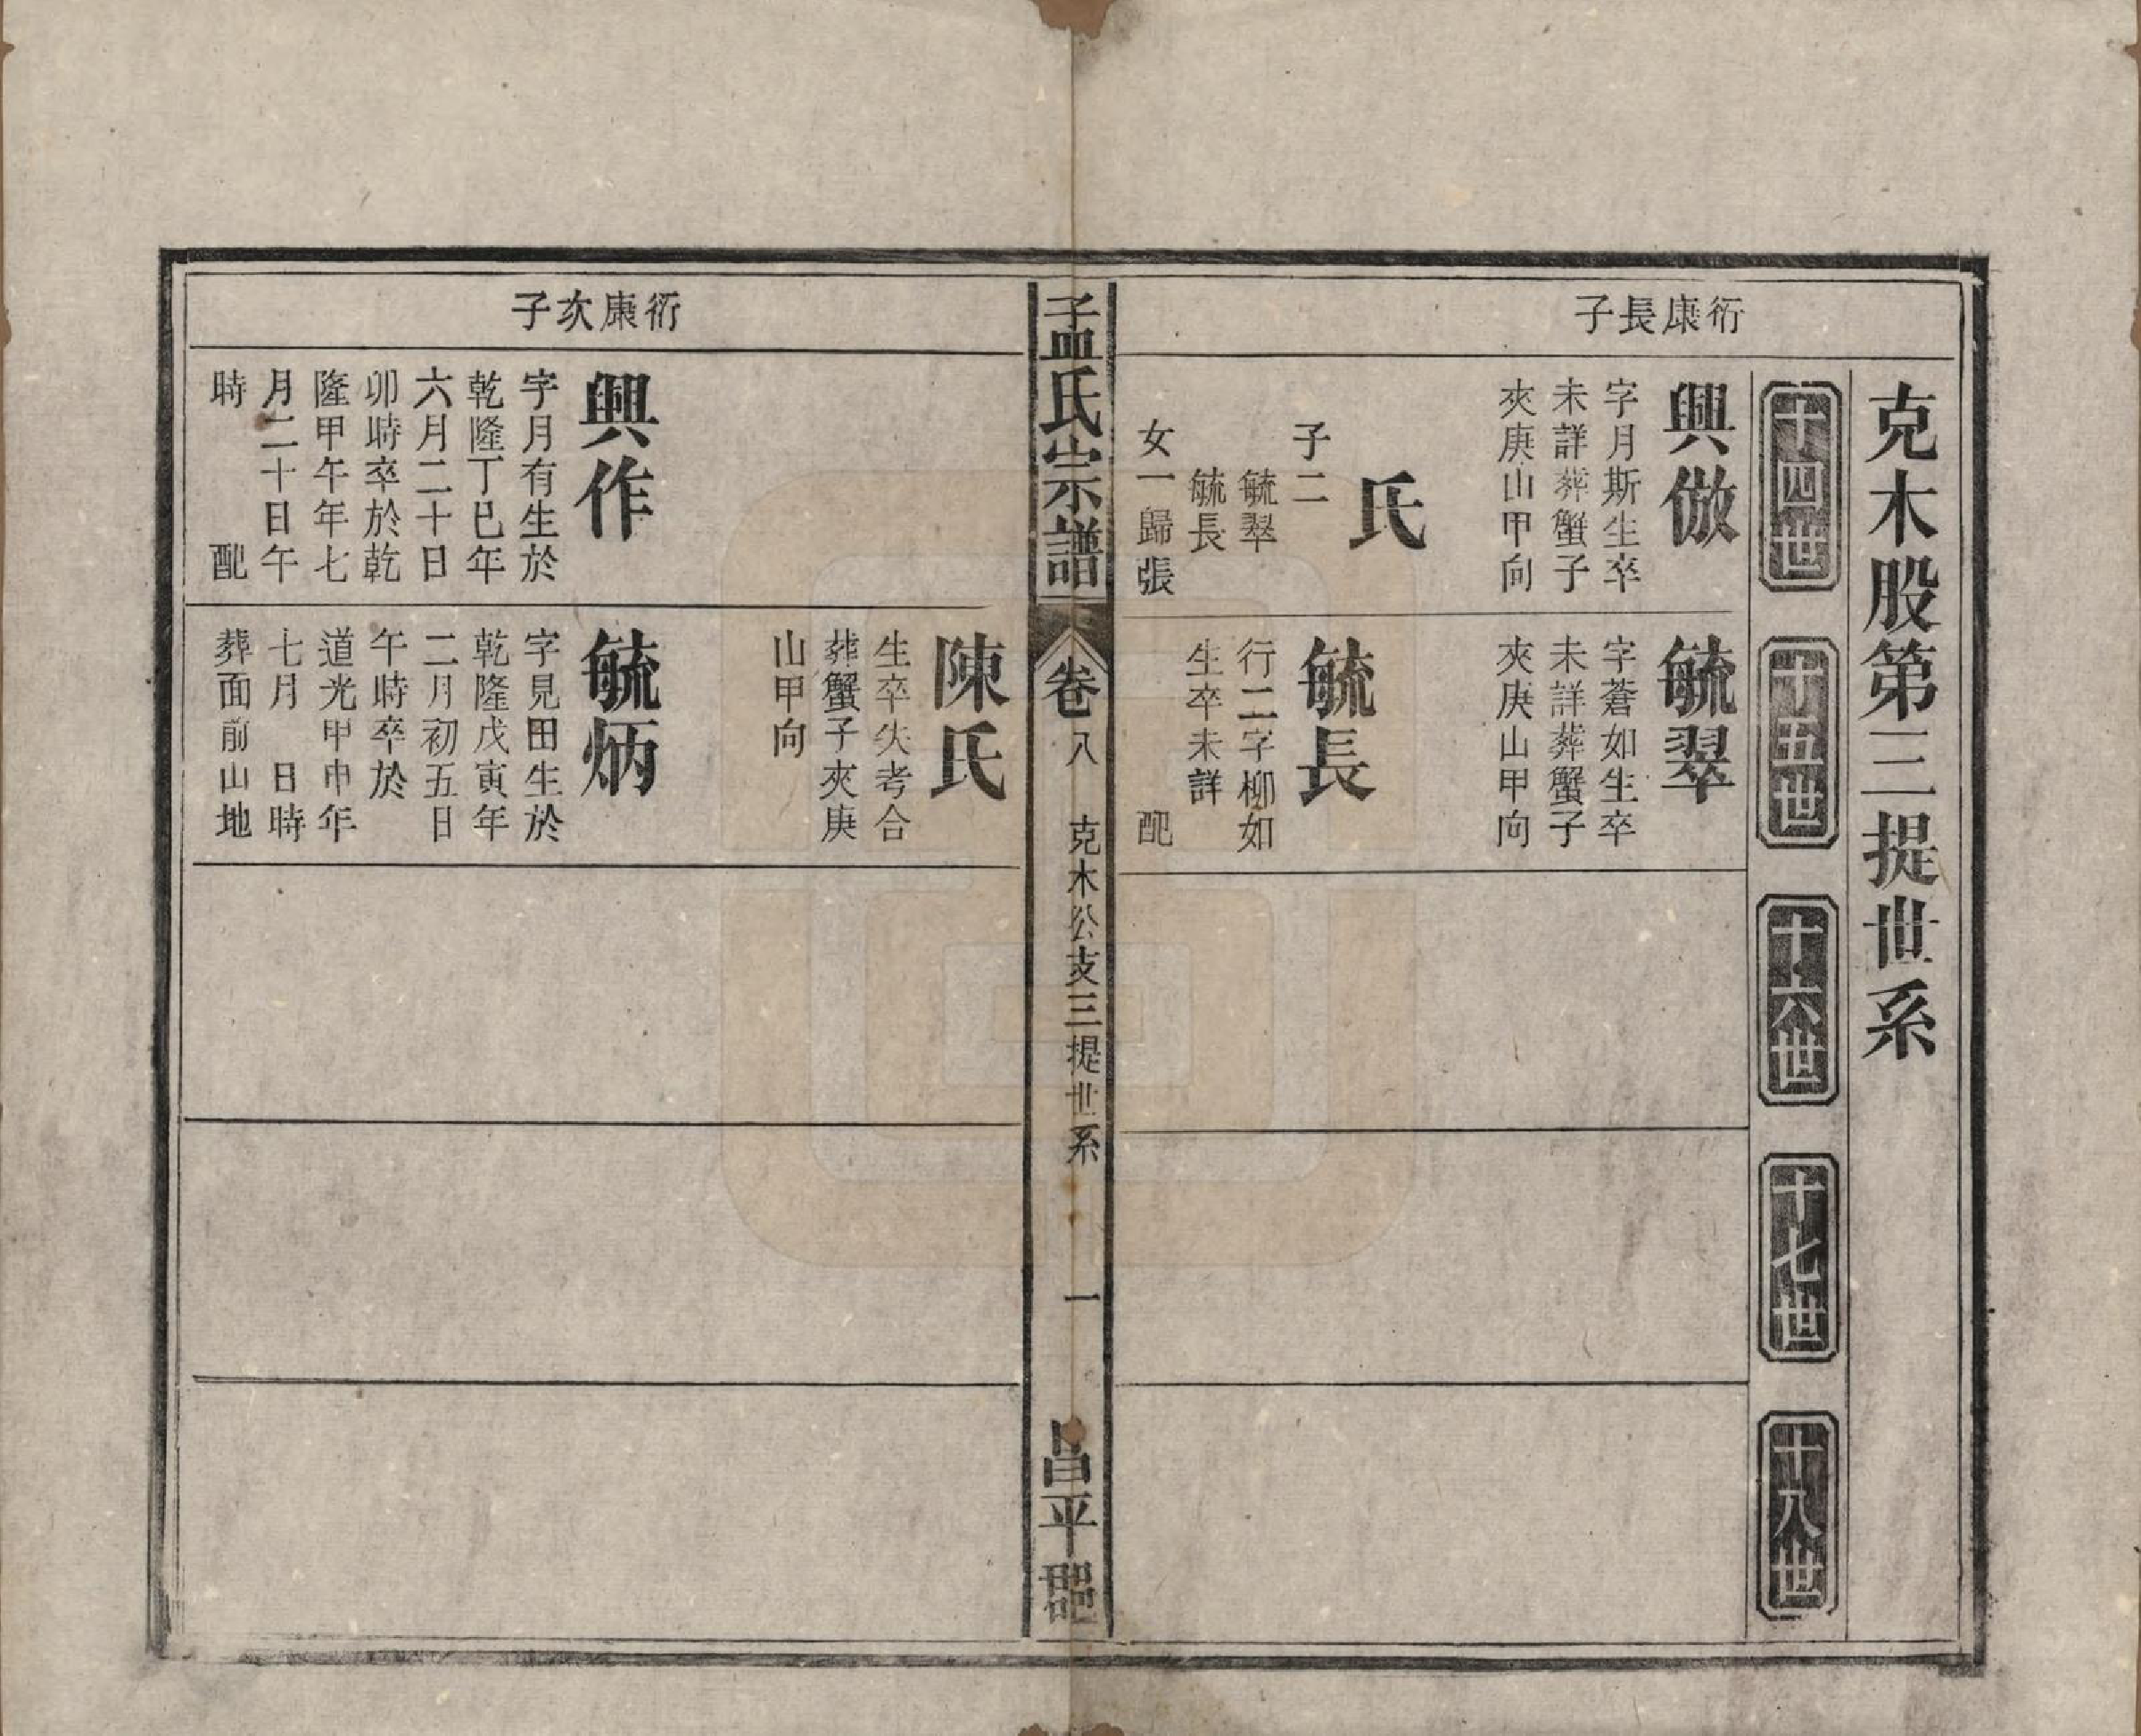 克木股第三提世系
十四世
十五世
十六世
十七世
十八世
衍康長子
興倣
字月斯生卒
未詳葬蟹子
夾庚山甲向
氏
子二
毓翠
毓長
女一歸張
毓翠
字蒼如生卒
未詳葬蟹子
夾庚山甲向
毓長
行二字柳如
生卒未詳
配
孟氏宗譜
卷八
克木公支三提世系
一
昌平郡
衍康次子
興作
字月有生於
乾隆丁巳年
六月二十日
卯時卒於乾
隆甲午年七
月二十日午
時 配
陳氏
生卒失考合
葬蟹子夾庚
山甲向
毓炳
字見田生於
乾隆戊寅年
二月初五日
午時卒於
道光甲申年
七月 日時
葬面前山地